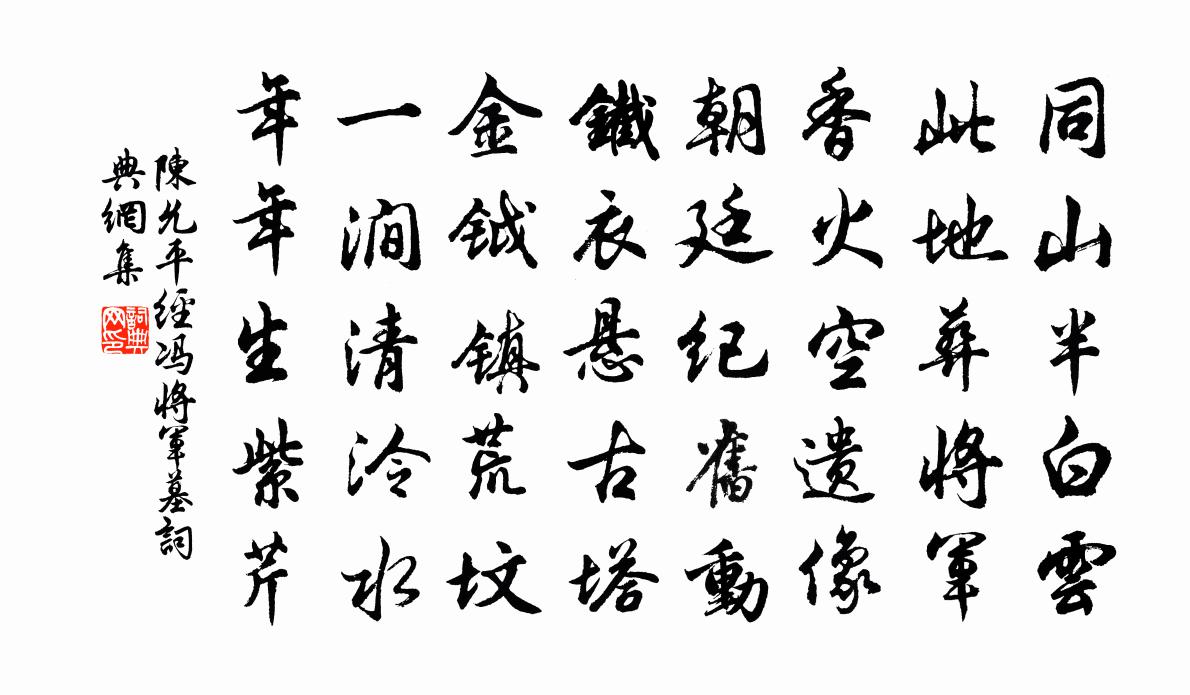 同山半白雲
此地葬將軍
香火空遺像
朝廷紀舊動
鐵衣悬古塔
金鉞鎮荒坟
一澗清泠水
年年生紫芹
陳允平經冯將軍墓詞
典網集
詞典网印